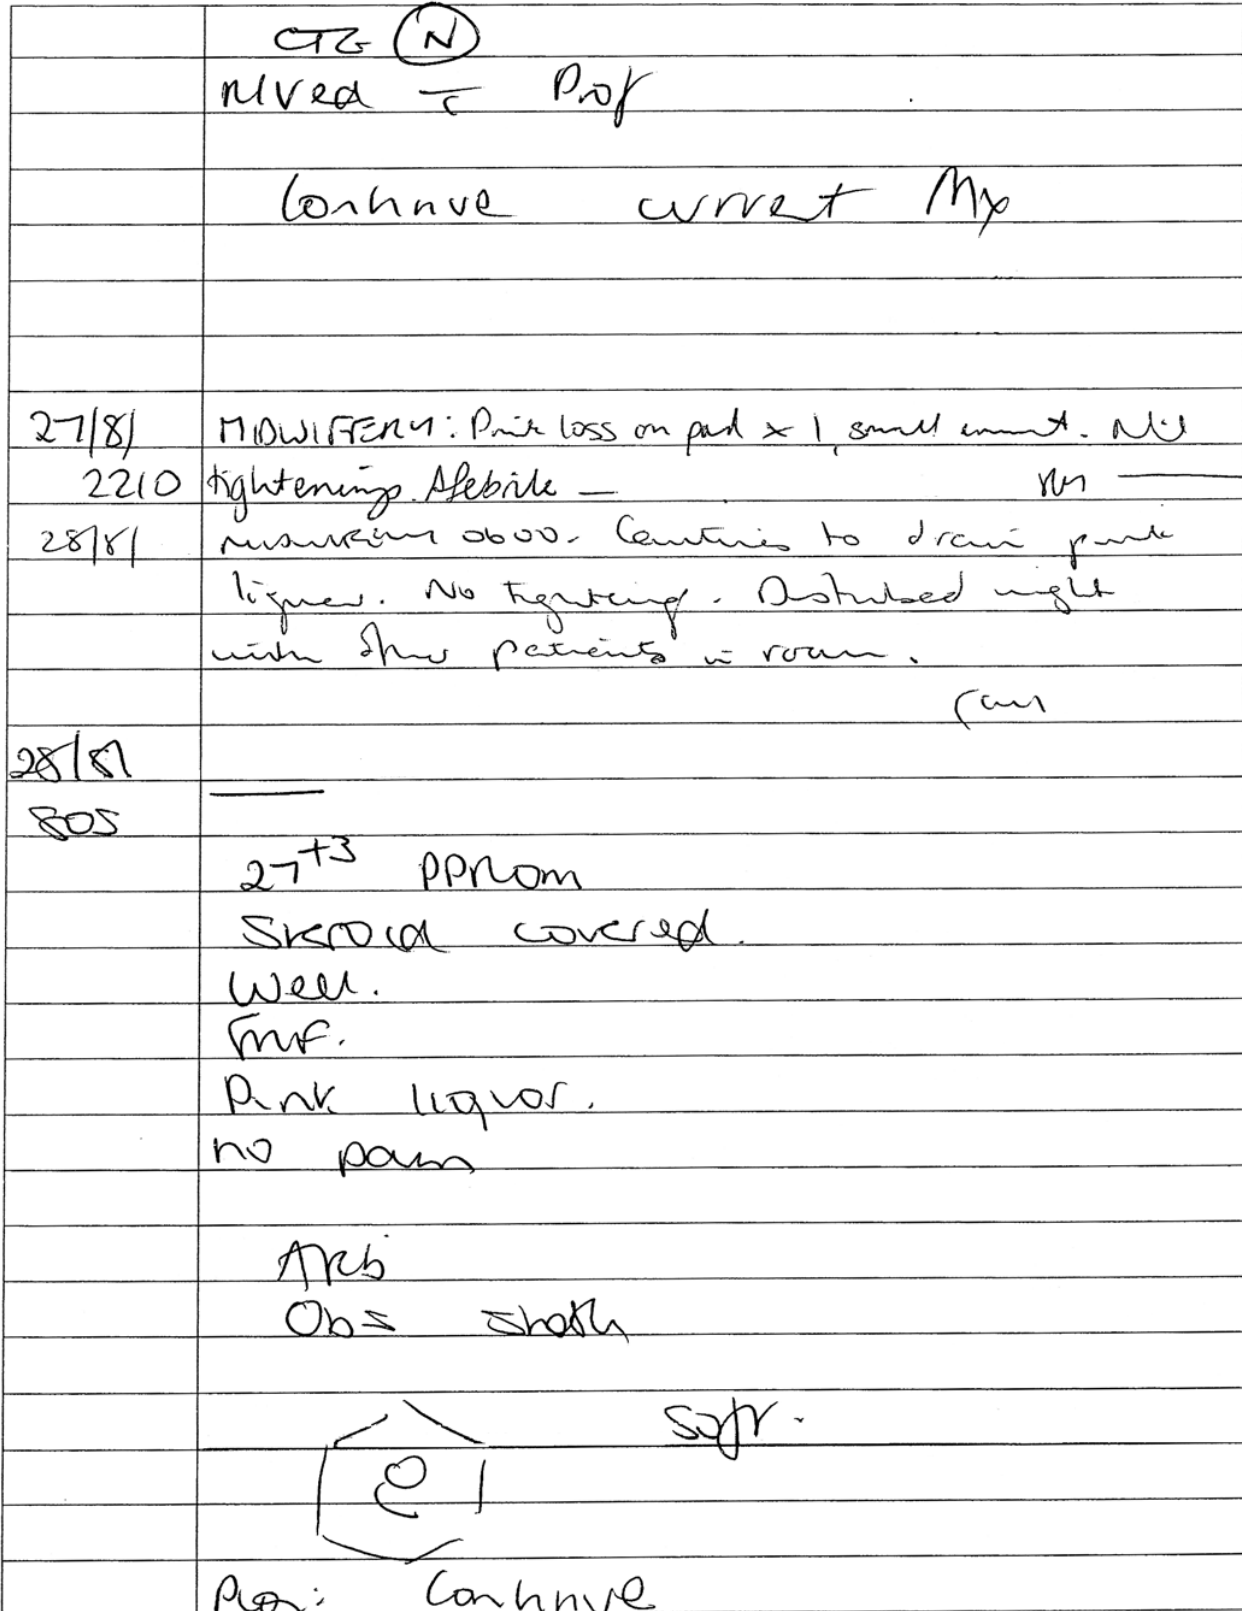 CTG (N)
R/Ved c̄ Prof
Continue current Mx
27/8/ MIDWIFERY: Pink loss on pad x 1, small amount. Nil
2210 tightenings. Afebrile —
28/8/ 0600. Continues to drain pink
liquor. No tightening. Disturbed night
with other patients in room.
28/8/
805
27+3 PPROM
Steroid covered.
Well.
FMF.
Pink liquor.
no pain
Obs stable
soft.
Plan: Continue